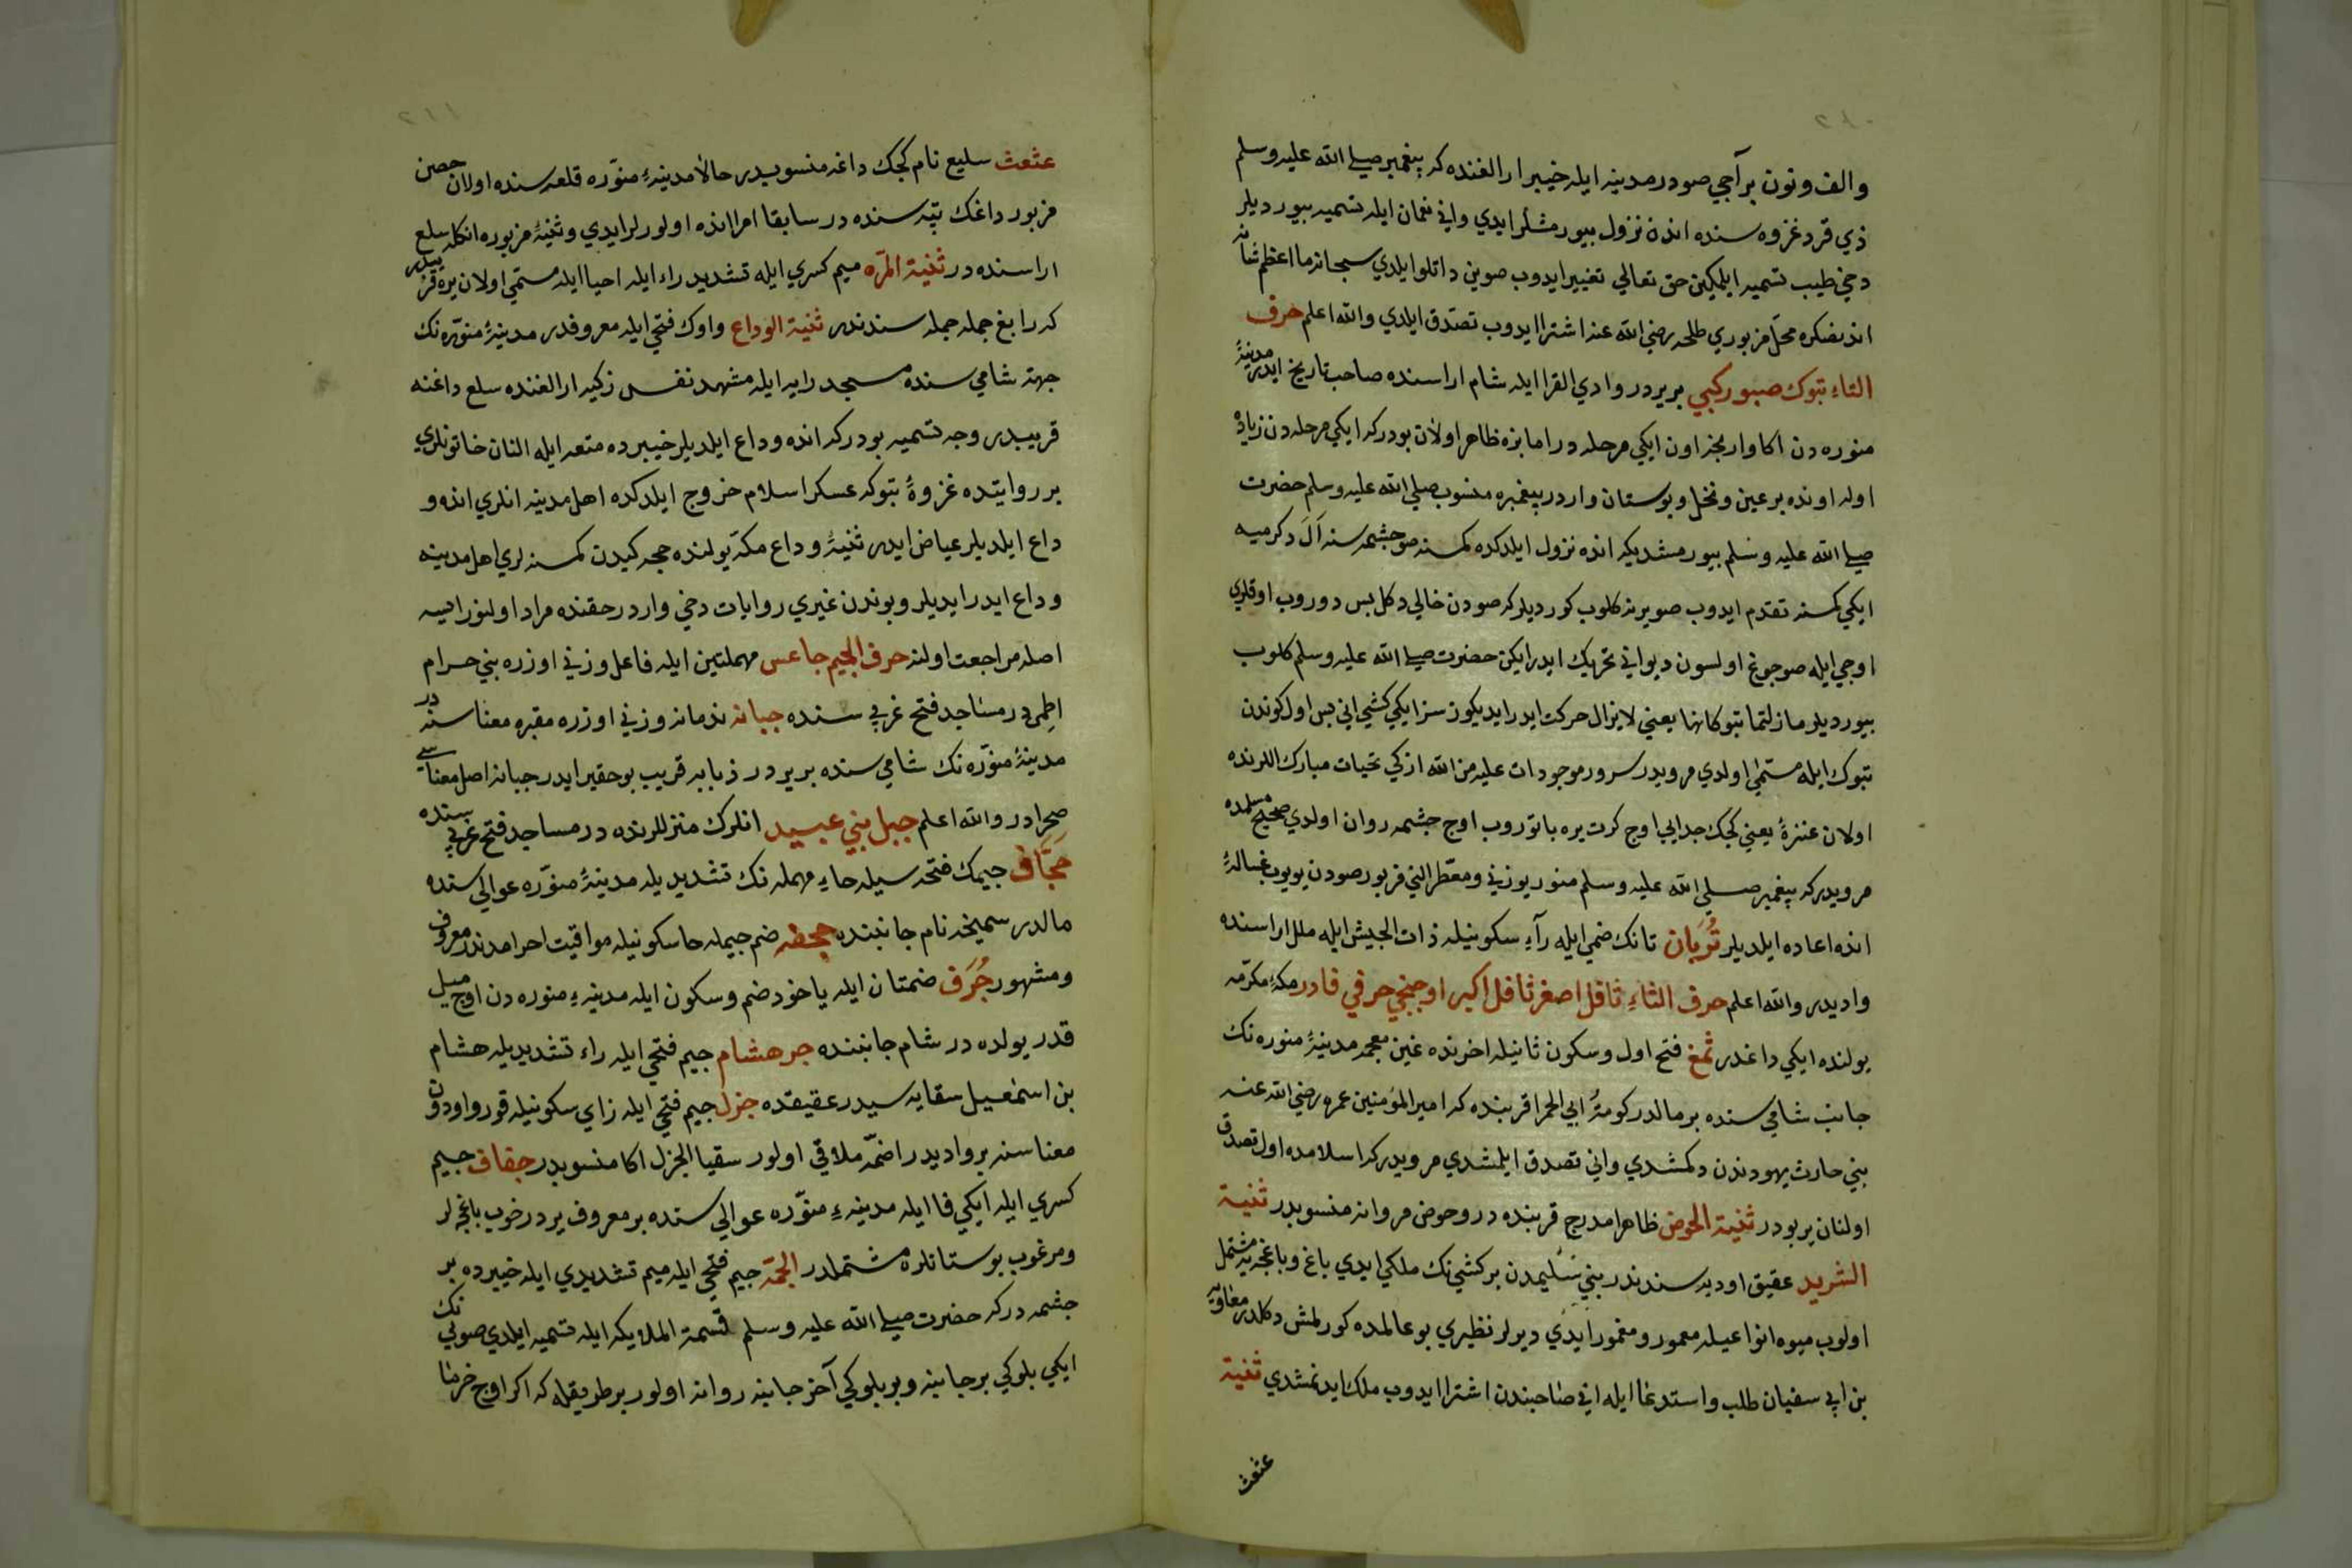 والف ونون بر آجي صودر مدينه ايله خيبر ارالغنده كه پيغمبر صلى الله عليه وسلم
ذي قرد غزوه سنده انده نزول بيورمشلر ايدي واني نعمان ايله تسميه بيورديلر
دخي طيب تسميه ايليكين حق تعالي تغيير ايدوب صوين داتلو ايلدي سبحانه ما اعظم شانه
اندنصكره محل مزبوري طلحه رضي الله عنه اشترا ايدوب تصدق ايلدي والله اعلم حرف
التاء تبوك صبور كبي بر يردر وادي القرا ايله شام اراسنده صاحب تاريخ ايدر مدينهٔ
منوره دن اكا وارنجه اون ايكي مرحله در اما بزه ظاهر اولان بودركه ايكي مرحله دن زياده
اوله اونده بر عين ونخل وبوستان واردر پيغمبره منسوب صلي الله عليه وسلم حضرت
صلى الله عليه وسلم بيورمشديكه انده نزول ايلدكده كمسنه صو چشمه سنه ال دكرميه
ايكي كمسنه تقدم ايدوب صو يرينه كلوب كورديلركه صودن خالي دكل بس دوروب اوقلري
اوجي ايله صو چوغ اولسون ديو اني تحريك ايدرايكن حضرت صلى الله عليه وسلم كلوب
بيورديلر مازلتما تبوكانها يعني لا يزال حركت ايدر ايديكوز سز ايكي كشي اني بس اول كوندن
تبوك ايله مسمى اولدي مرويدر سرور موجودات عليه من الله ازكي تحيات مبارك اللرنده
اولان عنزهٔ يعني كجك جدايي اوچ كرت يره باتوروب اوچ چشمه روان اولدي صحيح مسلمده
مرويدركه پيغمبر صلى الله عليه وسلم منور يوزني ومعطر الني مزبور صودن يويوب غسالهٔ
انده اعاده ايلديلر تُرَبان تانك ضمي ايله رآءِ سكونيله ذات الجيش ايله ملل اراسنده
واديدر والله اعلم حرف الثاءِ ثافل اصغر ثافل اكبر اوچنجي حرفي فادر مكهٔ مكرمه
يولنده ايكي داغدر ثمغ فتح اول وسكون ثانيله اخرنده غين معجمه مدينهٔ منوره نك
جانب شامي سنده بر مالدر كومهٔ ابي الحمرا قربنده كه امير المؤمنين عمره رضي الله عنه
بني حارث يهودندن دكمشدي واني تصدق ايلمشدي مرويدركه اسلامده اول تصدق
اولنان ير بودر ثنية الحوض ظاهرا مدرج قربنده در وحوض مروانه منسوبدر ثنية
الشريد عقيق اوديه سندندر بني سُليمدن بر كشي نك ملكي ايدي باغ وباغچه يه مشتمل
اولوب ميوه انواعيله معمور ومغمور ايدي ديرلر نظيري بو عالمده كورلمش دكلدر معاويه
بن ابي سفيان طلب واستدعا ايله اني صاحبندن اشترا ايدوب ملك ايدنمشدي ثنية
عثعث
عثعث سليع نام كجك داغه منسوبدر حالا مدينهٔ منوّره قلعه سنده اولان حصن
مزبور داغك تپه سنده در سابقا امرا انده اولورلر ايدي وثنيهٔ مزبوره انكله سلع
اراسنده در ثنية المرّه ميم كسري ايله تشديد راء ايله احيا ايله مسمّي اولان يره قربيدر
كه رابغ جمله سندندر ثنية الوداع واوك فتحي ايله معروفدر مدينهٔ منوّره نك
جهة شامي سنده مسجد رايه ايله مشهد نفس زكيه ارالغنده سلع داغنه
قريبدر وجه تسميه بودركه انده وداع ايلديلر خيبرده متعه ايله النان خاتونلري
بر روايتده غزوهٔ تبوكه عسكر اسلام خروج ايلدكده اهل مدينه انلري انده و
داع ايلديلر عياض ايدر ثنيهٔ وداع مكه يولنده حجه كيدن كمسنه لري اهل مدينه
وداع ايدر ايديلر وبوندن غيري روايات دخي واردر حقنده مراد اولنورايسه
اصله مراجعت اولنه حرف الجيم جاعس مهملتين ايله فاعل وزني اوزره بني حرام
اطمي در مساجد فتح غربي سنده جبانه ندمانه وزني اوزره مقبره معناسنه در
مدينهٔ منوّره نك شامي سنده بر يردر ذبابه قريب بو حقير ايدر جبانه اصل معناسي
صحرادر والله اعلم جبل بني عبيد انلرك منزللرنده در مساجد فتح غربي سنده
حجّاف جيمك فتحه سيله حاءِ مهمله نك تشديديله مدينهٔ منوّره عوالي سنده
مالدر سميخه نام جانبنده جحفه ضم جيمله حا سكونيله مواقيت احرامدندر معروف
ومشهور جُرَف ضمتان ايله ياخود ضم وسكون ايله مدينهٔ منوره دن اوچ ميل
قدر يولده در شام جانبنده جر هشام جيم فتحي ايله راء تشديديله هشام
بن اسمعيل سقايه سيدر عقيقده جزل جيم فتحي ايله زاي سكونيله قورو اودون
معناسنه بر واديدر اضمّه ملاقي اولور سقيا الجزل اكا منسوبدر جفاف جيم
كسري ايله ايكي فا ايله مدينهٔ منوّره عوالي سنده بر معروف يردر خوب باغچه لر
ومرغوب بوستانلره مشتملدر الجمّة جيم فتحي ايله ميم تشديدي ايله خيبرده بر
چشمه دركه حضرت صلى الله عليه وسلم قسمة الملايكه ايله تسميه ايلدي صوينك
ايكي بلوكي بر جانبه وبر بلوكي آخر جانبه روانه اولور بر طريقله كه اكر اوچ خرما